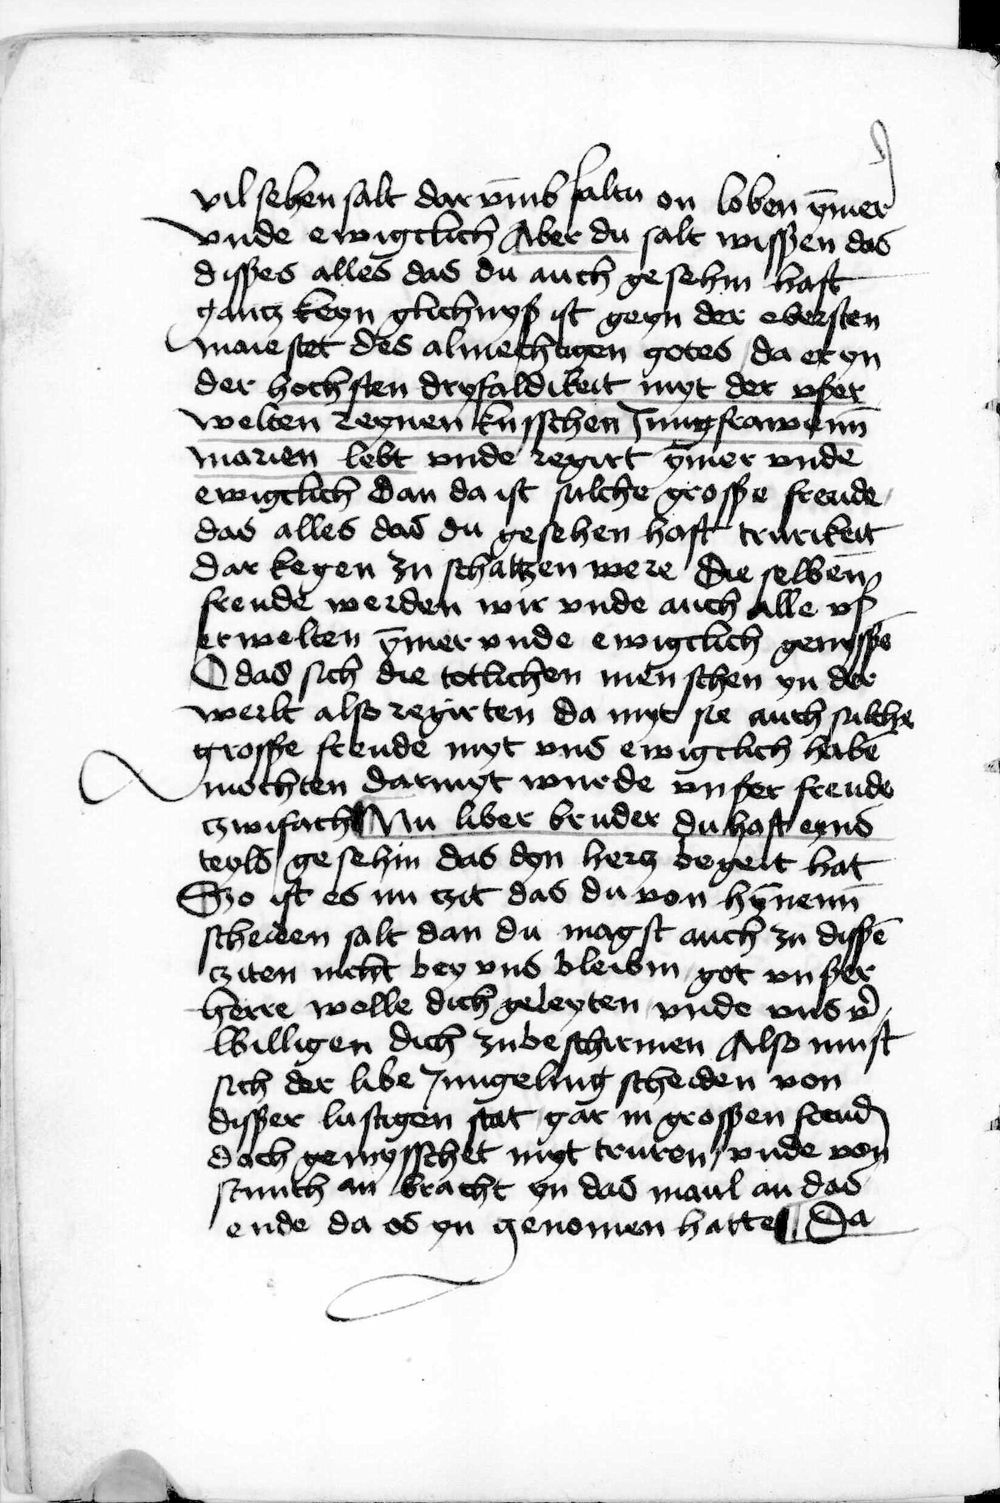 vil sehen salt dar vm̄b saltu on loben ȳmer
vnde ewigclich Aber du salt wisßen das
disßes alles das du auch gesehin hast
gantz keyn glichnyß ist geyn der obersten
maiestet des almechtigen gotes da er yn
der hochsten dryfaldikeit myt der vßer
welten reynen kusschen Jungfrawenn̄
marien lebt vnde regirt ȳmer vnde
ewigclich Dan da ist sulche grosße freude
das alles das du gesehen hast trurikeit
dar kegen zu schatzen were Die selben̄
freude werden wir vnde auch alle vß
erwelten ȳmer vnde ewigclich genyssē
O das sich die totlichen menschen yn der
werlt also regirten da myt sie auch sulche
grosße freude myt vns ewigclich habē
mochten darmyt wurde vnßer freude
tzwifach ¶ Nu liber bruder du hast eyns
teyls gesehin das dyn hertz begert hat
Szo ist es nu tzit das du von hȳnenn̄
scheiden salt dan du magst auch zu disßē
tziten nicht bey vns bleibin got vnßer
herre wolle dich geleyten vnde vns v̄
willigen dich zubeschirmen Also must
sich der libe Jungeling scheiden von
disßer lustigen stat gar in grosßen freud
doch gemysschet myt truren vnde von
stunth an bracht yn das maul an das
ende da es yn genomen hatte ¶ Da